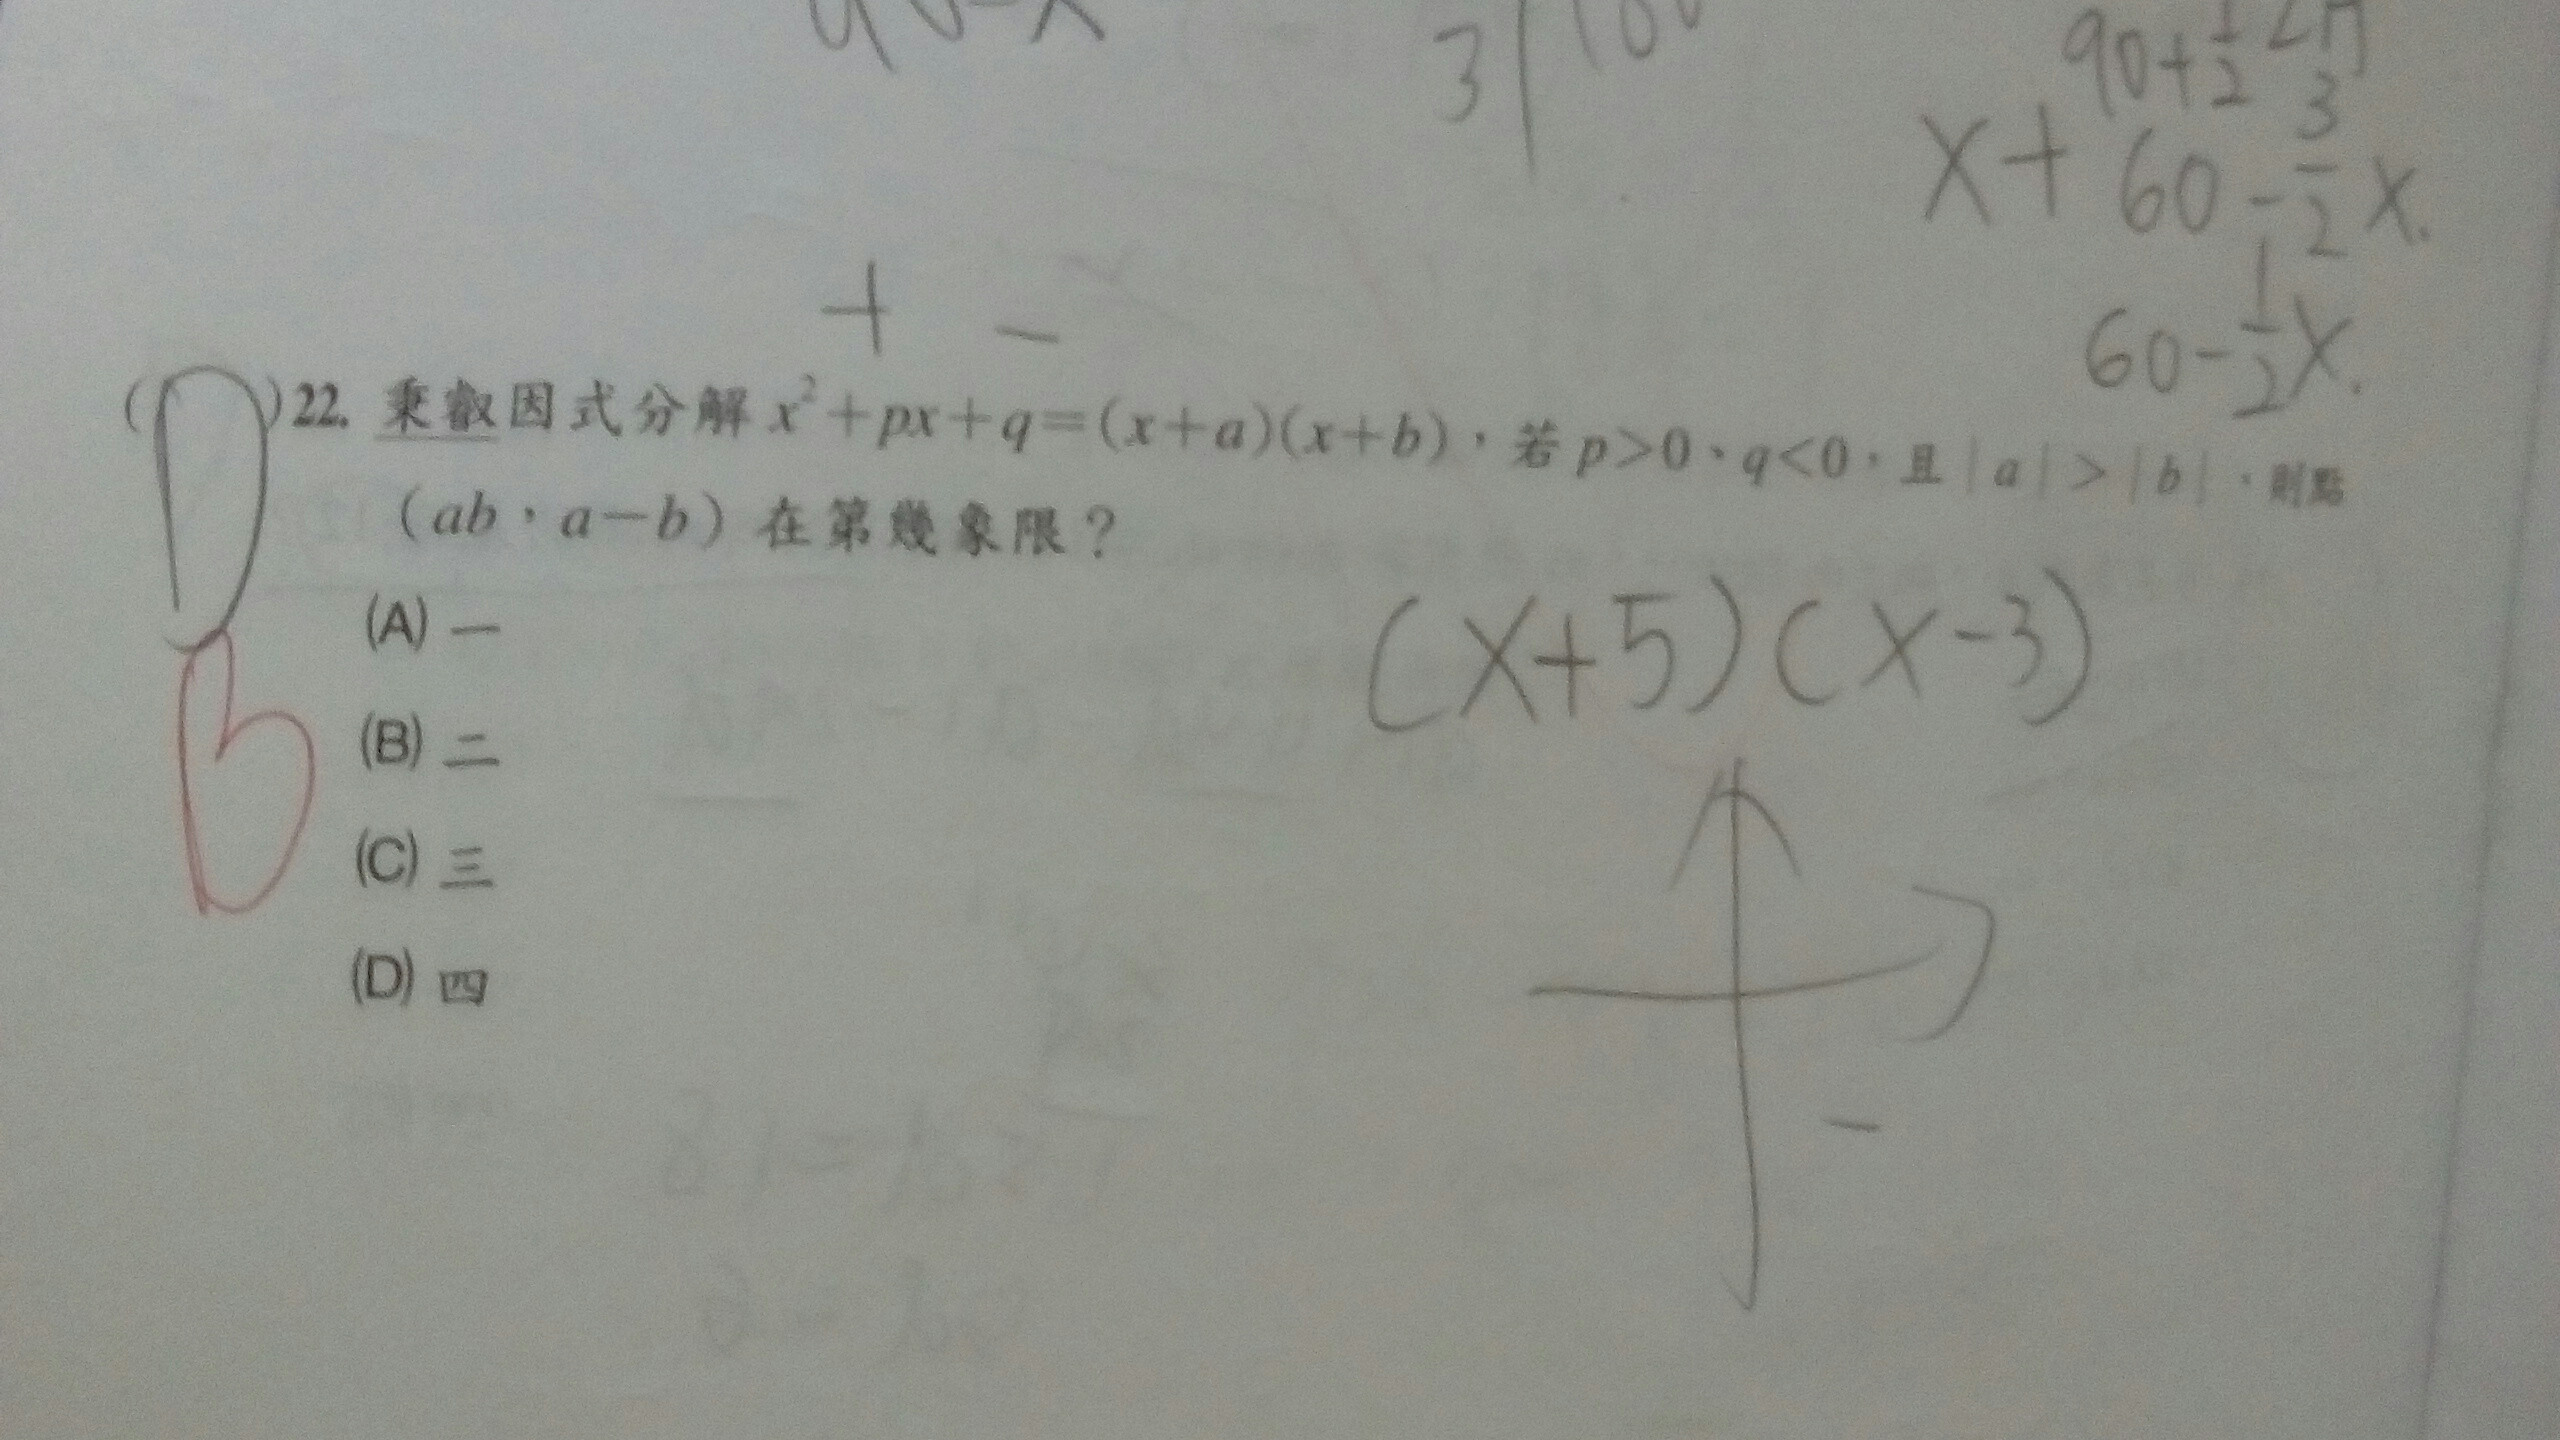 3
90+½∠A
x+60-3/2x.
60-½x.
+ -
(D)22. 秉叡因式分解x²+px+q=(x+a)(x+b),若p>0、q<0,且|a|>|b|,則點
(ab,a-b)在第幾象限?
(x+5)(x-3)
(A)一
B
(B)二
(C)三
(D)四
-